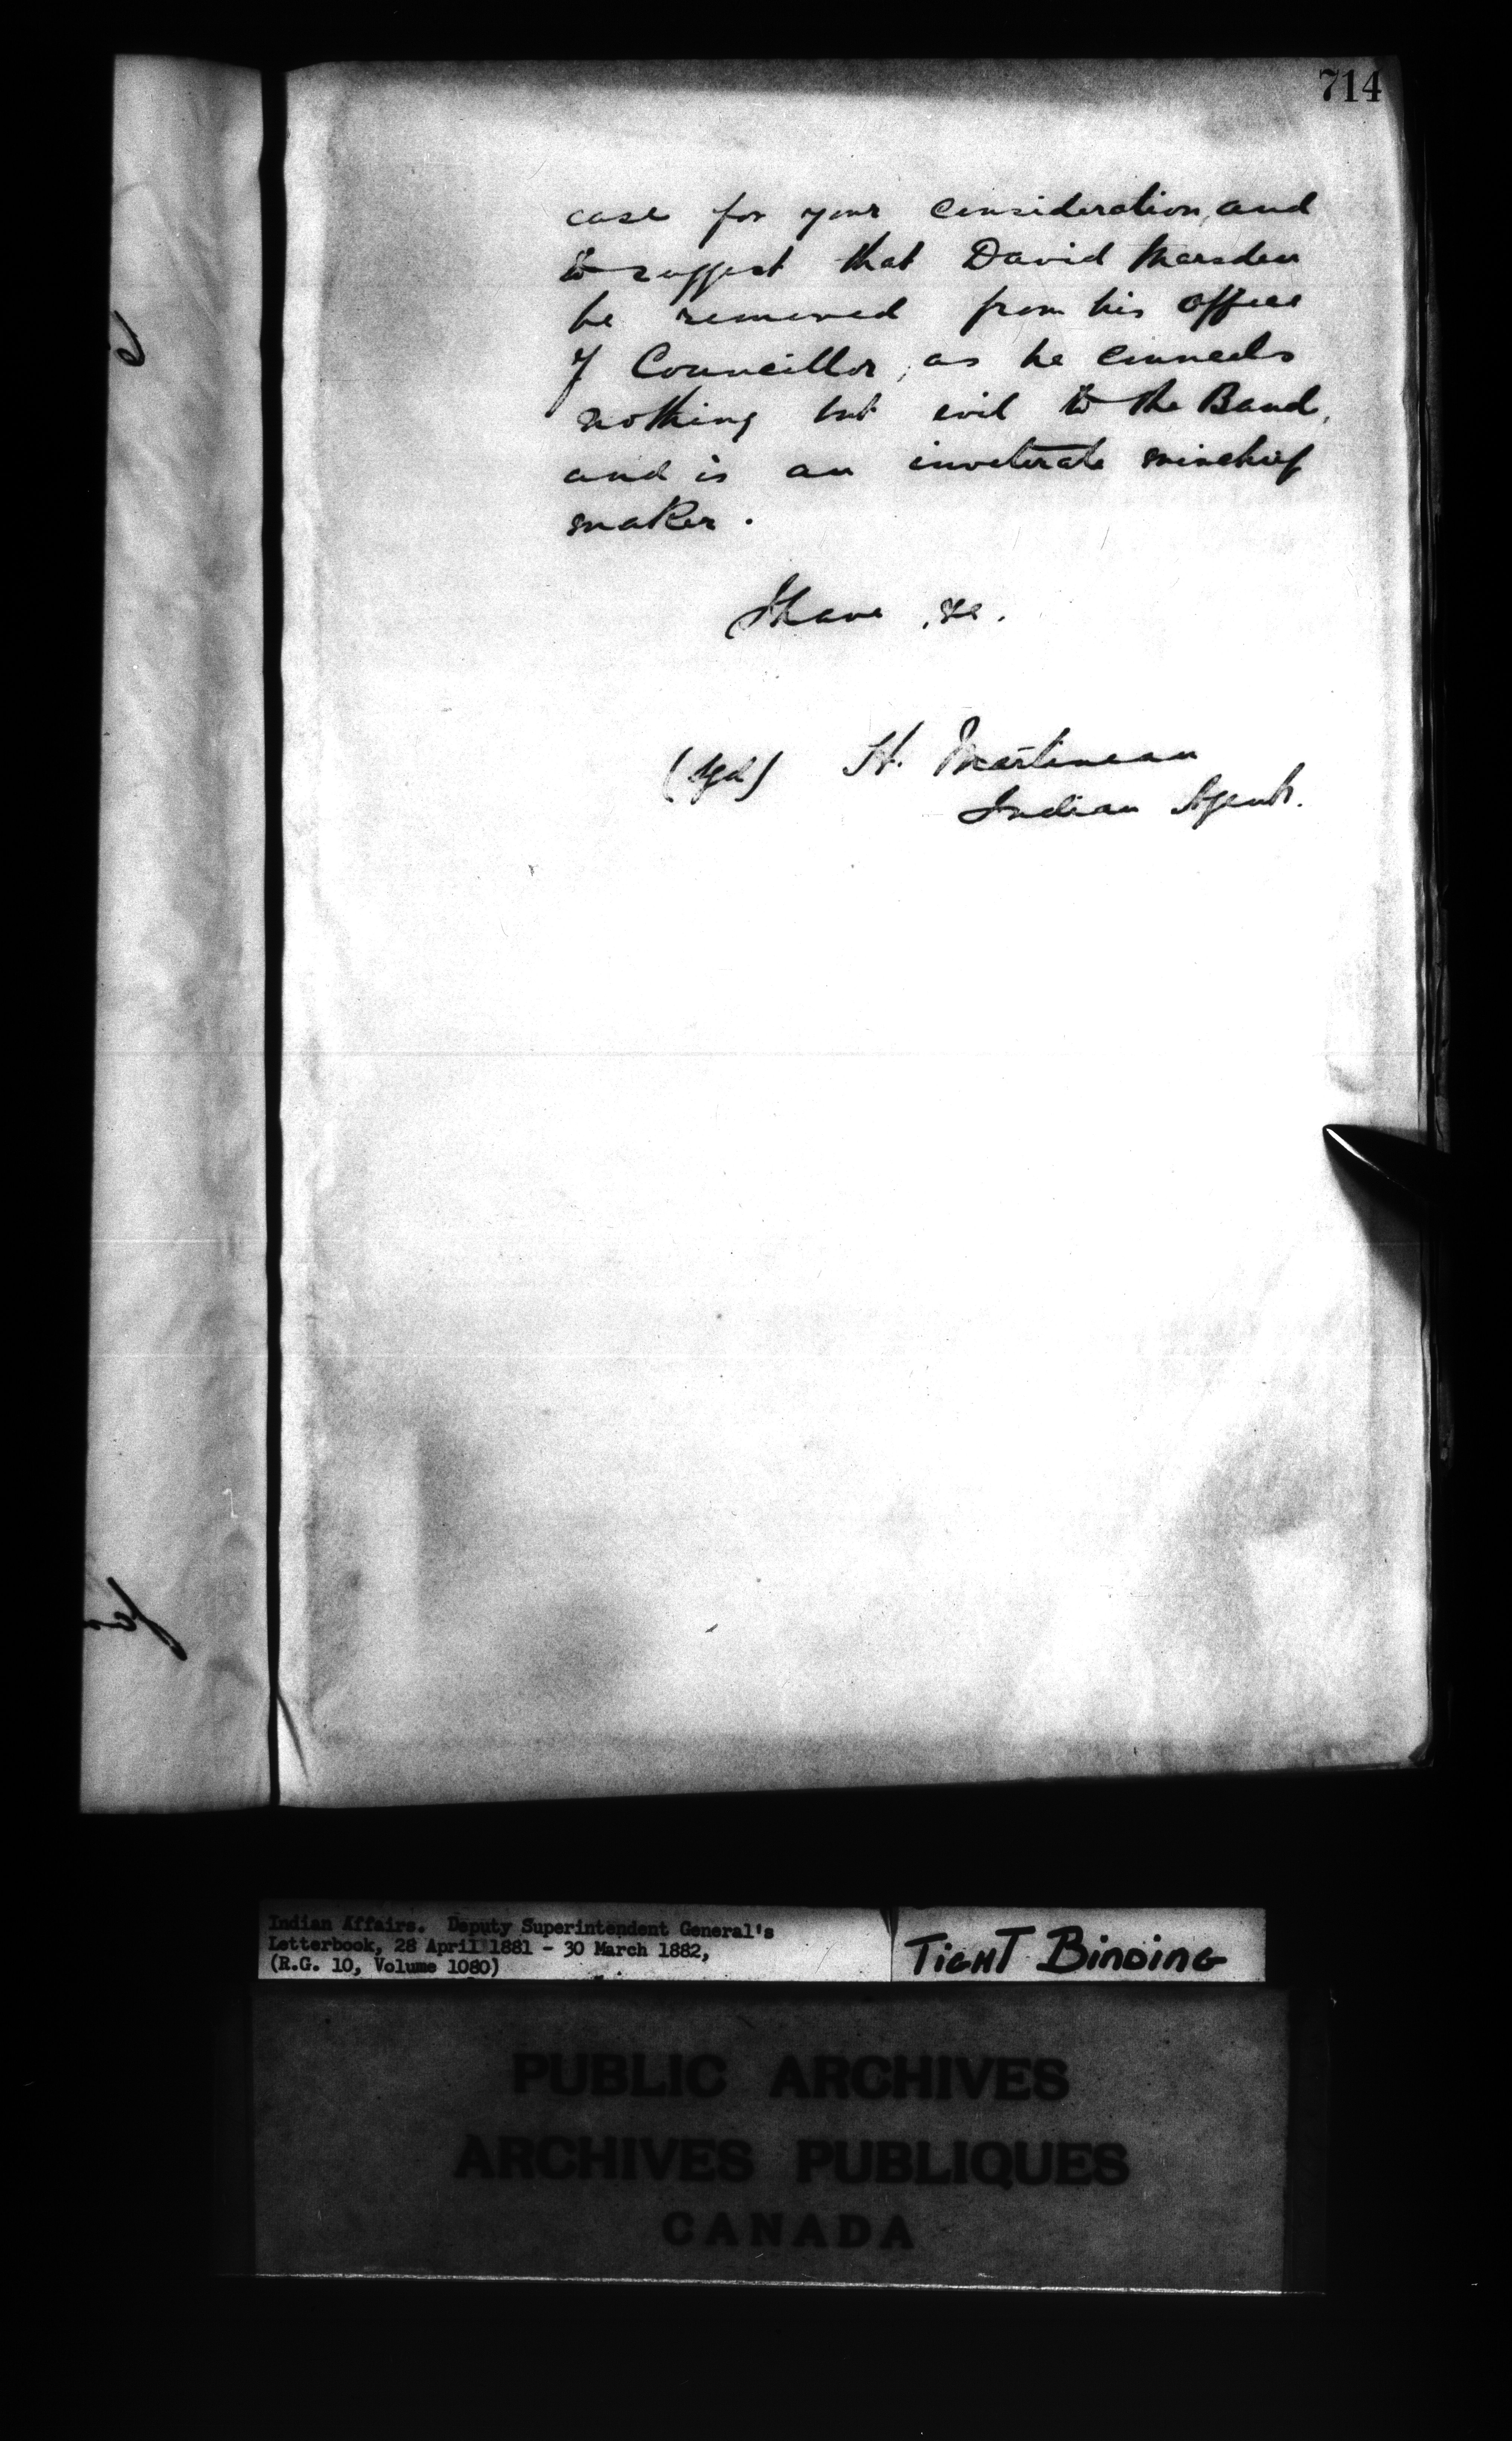 714
case for your consideration, and
to suggest that David Marsden
be removed from his office
of Councillor, as he counsels
nothing but evil to the Band,
and is an inveterate mischief
maker.
I have, &c.
(sgd) H. Martineau
Indian Agent.
Indian Affairs. Deputy Superintendent General's
Letterbook, 28 April 1881 - 30 March 1882,
(R.G. 10, Volume 1080)
TIGHT BINDING
PUBLIC ARCHIVES
ARCHIVES PUBLIQUES
CANADA